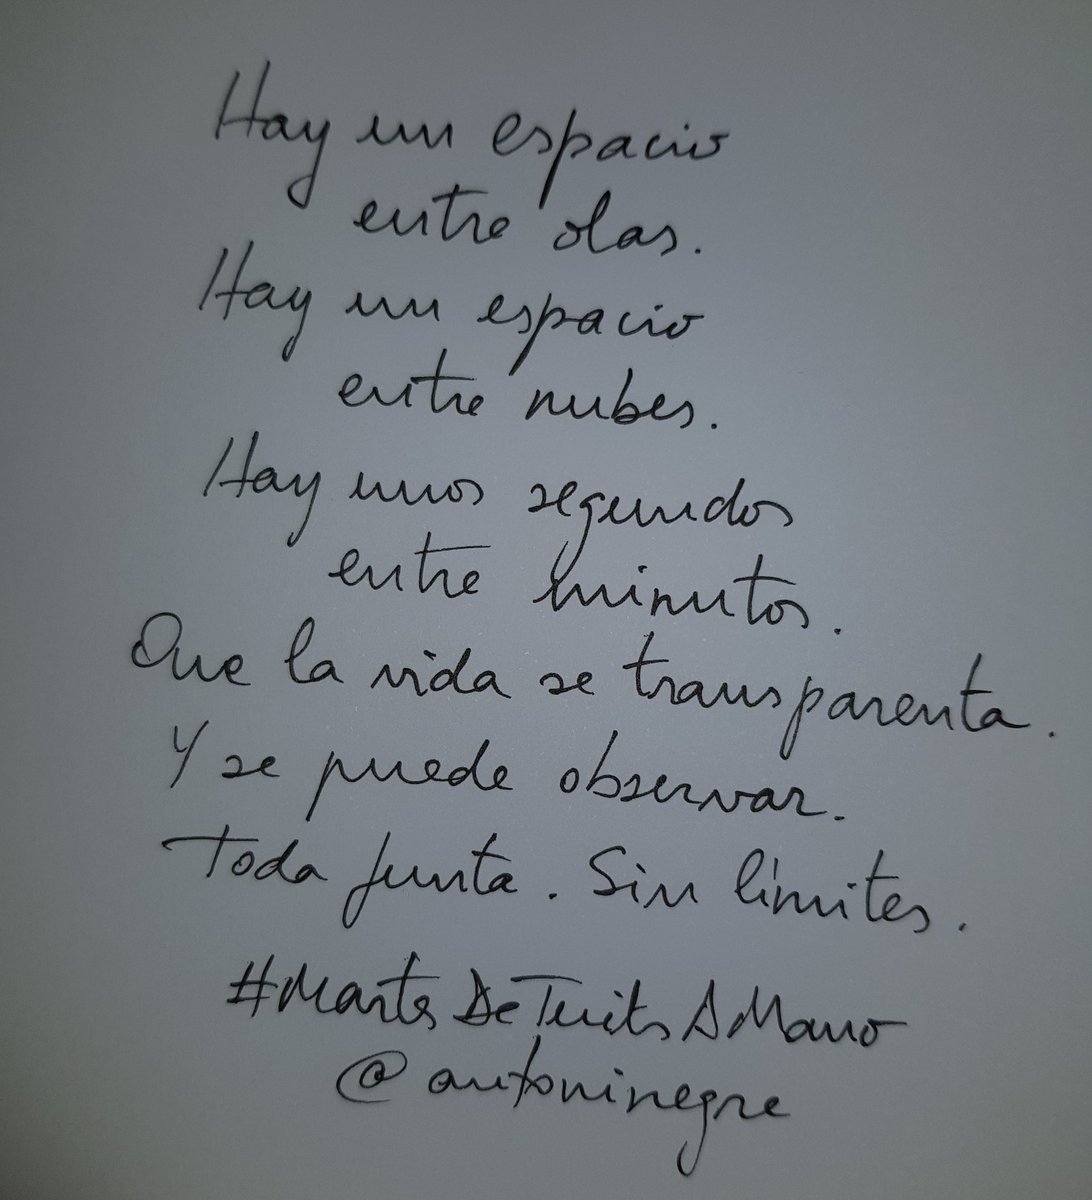 Hay un espacio
entre olas.
Hay un espacio
entre nubes.
Hay unos segundos
entre minutos.
Que la vida se transparenta.
Y se puede observar.
Toda junta. Sin límites.
#MartesDeTuitsAMano
@antoninegre